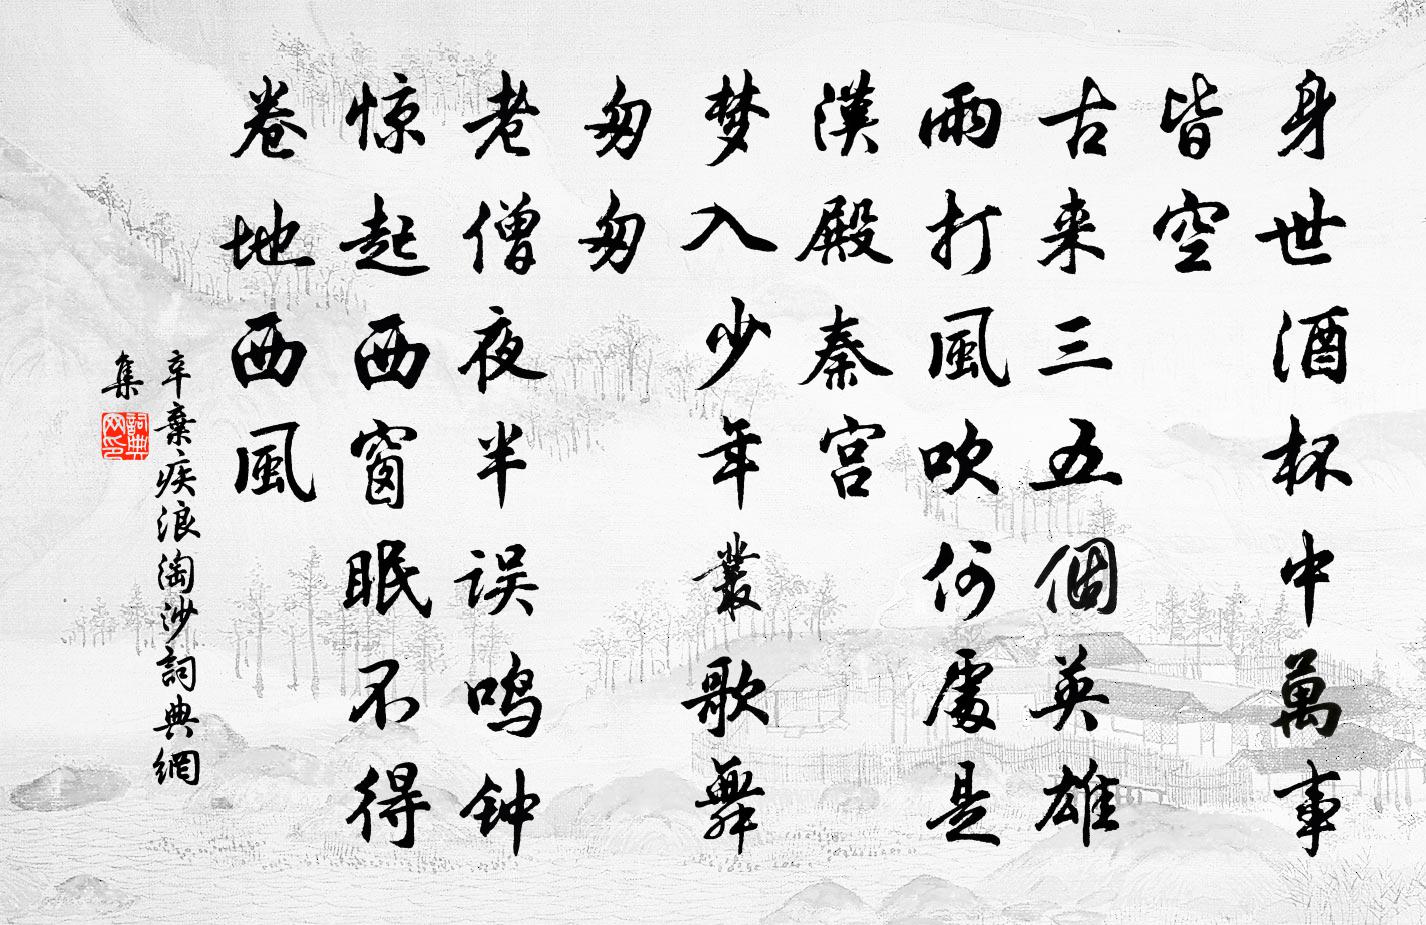 身世酒杯中萬事
皆空
古来三五個英雄
雨打風吹何處是
漢殿秦宫
梦入少年叢歌舞
匆匆
老僧夜半误鸣钟
惊起西窗眠不得
卷地西風
辛棄疾浪淘沙詞典網
集
詞典
网印